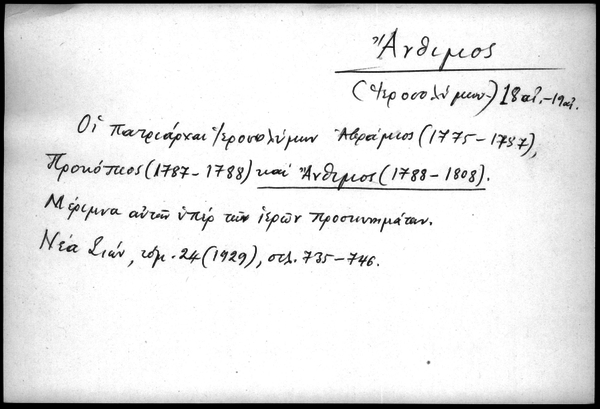 Ἄνθιμος
(Ἱεροσολύμων) 18 αἰ.-19 αἰ.
Οἱ πατριάρχαι Ἱεροσολύμων Ἀβράμιος (1775-1787),
Προκόπιος (1787-1788) καὶ Ἄνθιμος (1788-1808).
Μέριμνα αὐτῶν ὑπὲρ τῶν ἱερῶν προσκυνημάτων.
Νέα Σιών, τόμ. 24 (1929), σελ. 735-746.